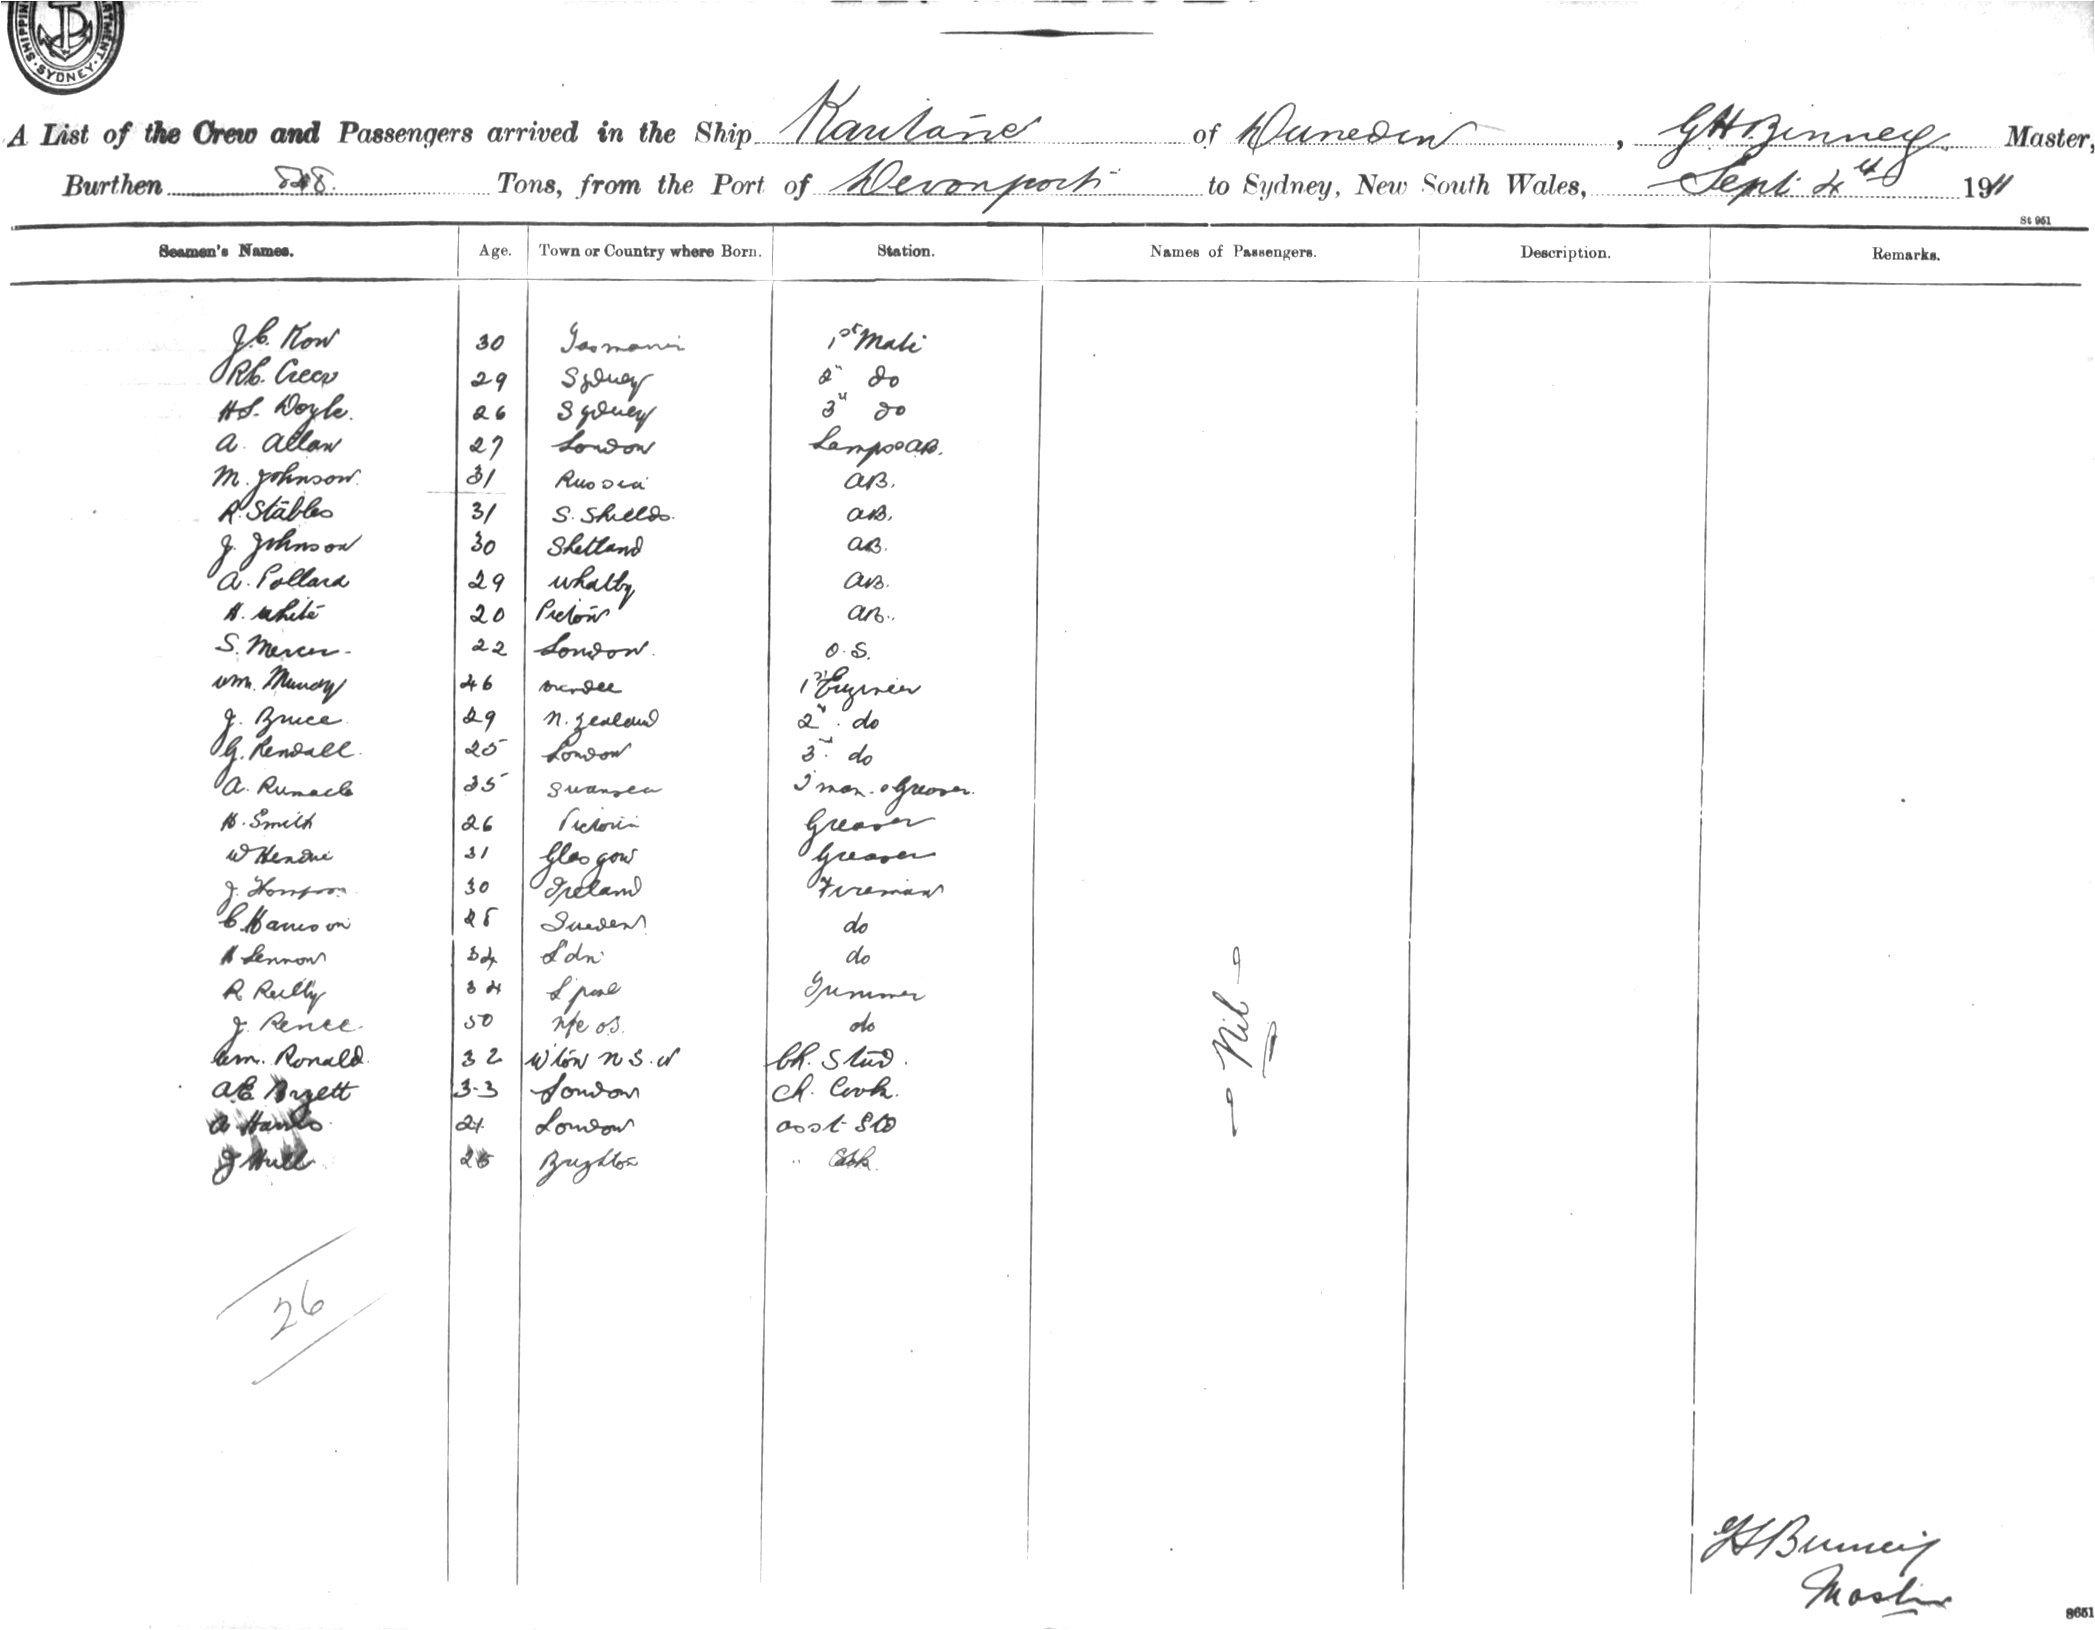 SHIPPING DEPARTMENT SYDNEY
A List of the Crew and Passengers arrived in the Ship Karitane of Dunedin, G H Binney Master,
Burthen Tons, from the Port of Devonport to Sydney, New South Wales, Sept 4th 1911
St 961
Seamen's Names. Age. Town or Country where Born. Station. Names of Passengers. Description. Remarks.
J.C. Kow 30 Tasmania 1st Mate
R.C. 29 Sydney 2" do
H.S. Doyle. 26 Sydney 3" do
A. Allan 27 London Lamps & AB.
M. Johnson. 31 Russia AB.
R. Stables 31 S. Shields. AB.
J. Johnson 30 Shetland AB.
A. Pollard 29 Whalby AB.
H. White 20 Picton AB.
S. Mercer 22 London. O.S.
Wm. Mundy 46 Dundee 1st Engineer
J. Bruce 29 N. Zealand 2" do
G. Kendall. 25 London 3" do
A. 35 Swansea & Greaser.
H. Smith 26 Victoria Greaser
W Hendrie 31 Glasgow Greaser
J. Thompson 30 Ireland Fireman
C. Harrison 28 Sweden do
H Lennon 34 Ldn do
R Reilly 34 L'pool Trimmer
J. Rence. 50 do
Wm. Ronald. 32 W'ton N S. W Ch. Stwd.
A.E. 33 London Ch. Cook.
A Harris 21 London Asst Std
J Hull 26 Brighton " Cook.
— Nil —
26
G H Binney
Master
8651